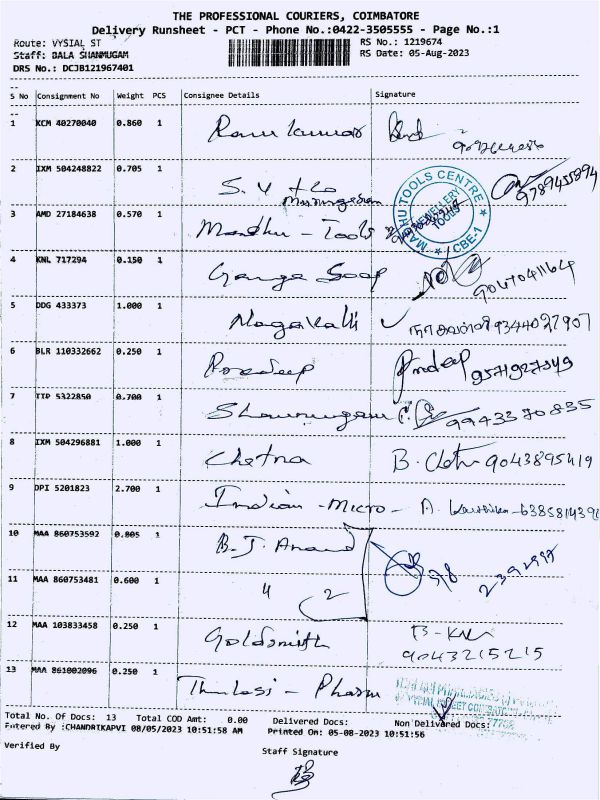 THE PROFESSIONAL COURIERS, COIMBATORE
Delivery Runsheet - PCT - Phone No.:0422-3505555 - Page No.:1
Route: VYSIAL ST
RS No.: 1219674
Staff: BALA SHANMUGAM
RS Date: 05-Aug-2023
DRS No.: DCJB121967401
S No Consignment No Weight PCS Consignee Details Signature
1 KCM 40270040 0.860 1 Ram Kumar
2 IXM 504248822 0.705 1 S. V & Co Murugesan 9789455894
3 AMD 27184638 0.570 1 Mandhu - Tools
MADHU TOOLS CENTRE
JEWELLERY TOOLS
CBE-1
4 KNL 717294 0.150 1 Ganga Soap
5 DDG 433373 1.000 1 Nagavalli நாகவள்ளி 9344027907
6 BLR 110332662 0.250 1 Pradeep Pradeep 9571927349
7 TTP 5322850 0.700 1 Shanmugam 9943370835
8 IXM 504296881 1.000 1 Chetna B. 9043895419
9 DPI 5201823 2.700 1 Indian - Micro - A.
10 MAA 860753592 0.805 1 B. J. Anand
11 MAA 860753481 0.600 1 " 2
12 MAA 103833458 0.250 1 Goldsmith
9043215215
13 MAA 861002096 0.250 1 Thulasi - Pharm
Total No. Of Docs: 13 Total COD Amt: 0.00 Delivered Docs: Non Delivered Docs:
Entered By :CHANDRIKAPVI 08/05/2023 10:51:58 AM Printed On: 05-08-2023 10:51:56
Verified By
Staff Signature